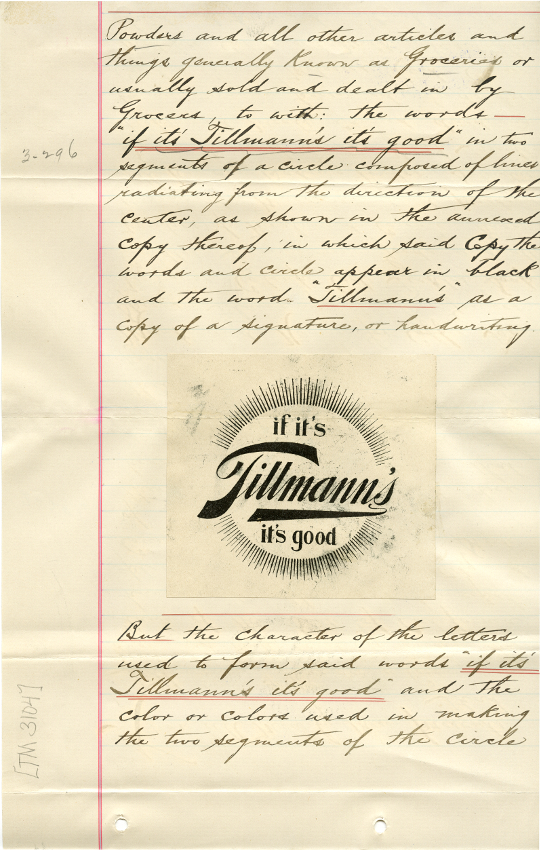 Powders and all other articles and
things generally known as Groceries or
usually sold and dealt in by
Grocers, to with: the words —
"if its Tillmann's its good" in two
3-296
segments of a circle composed of lines
radiating from the direction of the
center, as shown in the annexed
copy thereof, in which said Copy the
words and circle appear in black
and the word "Tillmann's" as a
copy of a signature, or handwriting.
if it's
Tillmann's
it's good
But the character of the letters
used to form said words "if it's
Tillmann's it's good" and the
color or colors used in making
the two segments of the circle
LTM 31047